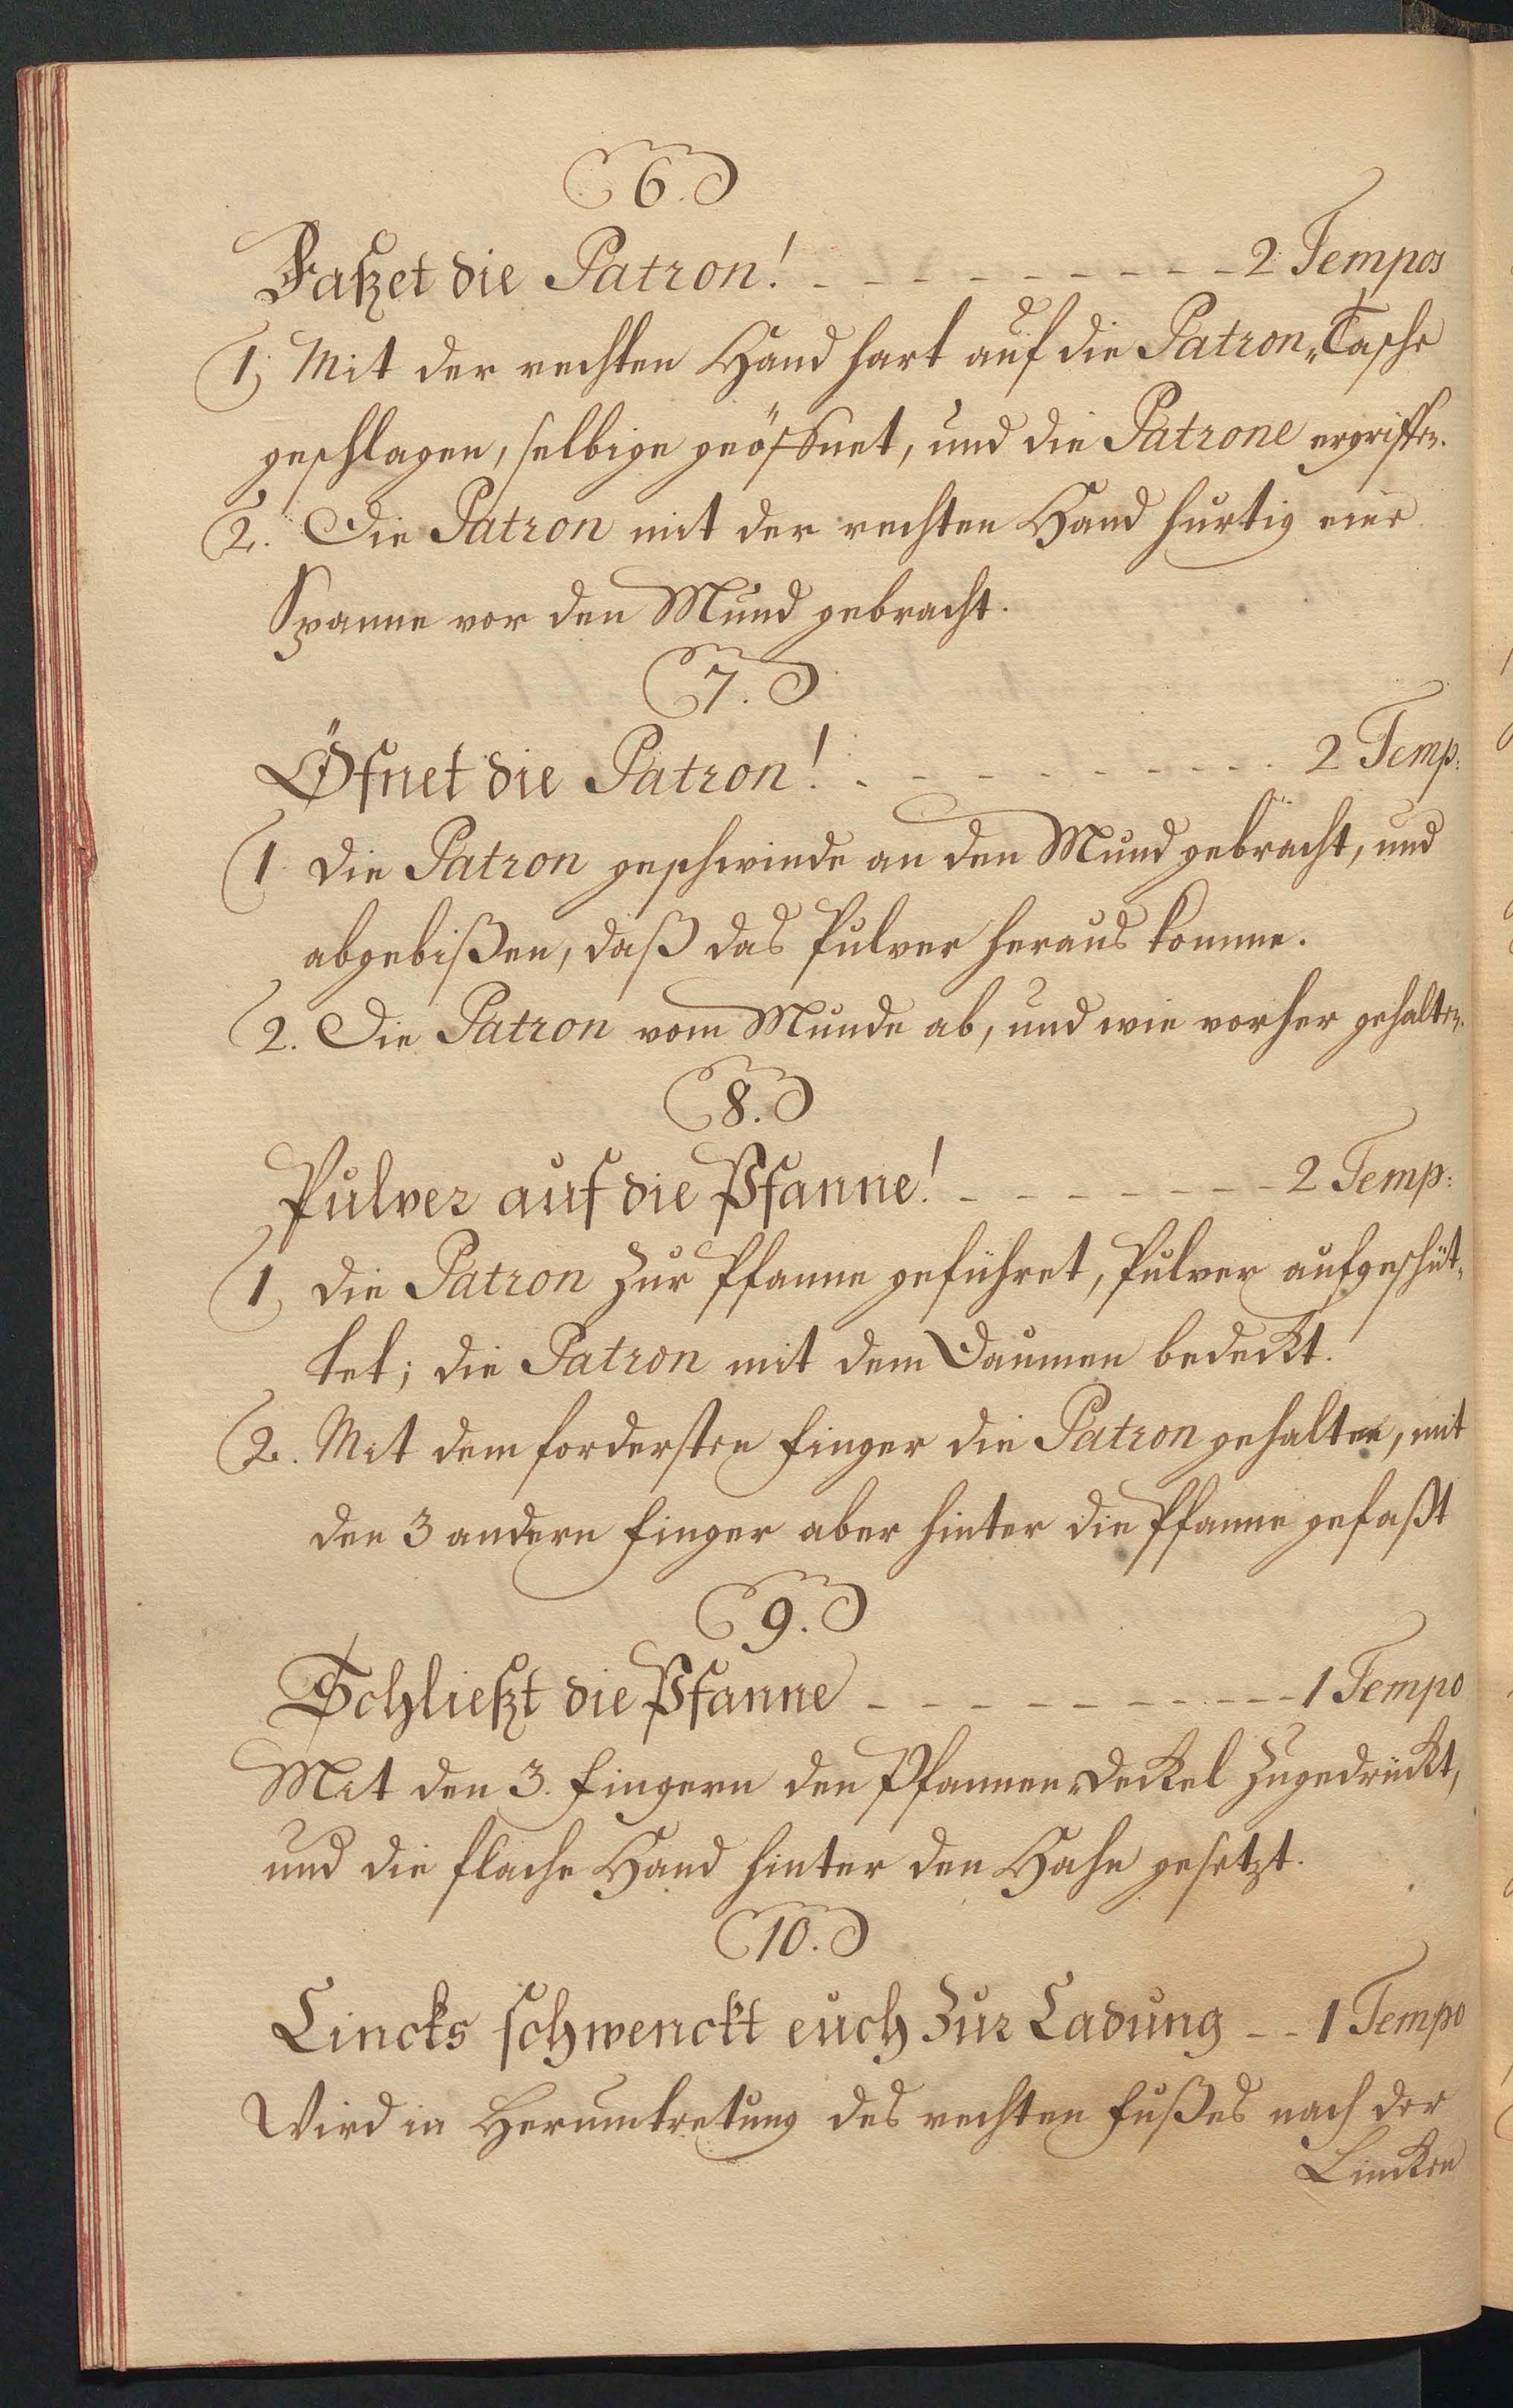 6.
Faßet die Patron! - - - - - - - - 2 Tempos
1, Mit der rechten Hand hart auf die Patron„Tasche
geschlagen, selbige geöffnet, und die Patrone ergriffen.
2. Die Patron mit der rechten Hand hurtig eine
Spanne vor den Mund gebracht.
7.
Öfnet die Patron! - - - - - - - - 2 Temp:
1. die Patron geschwinde an den Mund gebracht, und
abgebißen, daß das Pulver heraus komme.
2. Die Patron vom Munde ab, und wie vorher gehalten.
8.
Pulver auf die Pfanne! - - - - - - - 2 Temp:
1, die Patron zur Pfanne geführet, Pulver aufgeschüt„
tet; die Patron mit dem Daumen bedeckt.
2. Mit dem fordersten Finger die Patron gehalten, mit
den 3 andern Finger aber hinter die Pfanne gefaßt
9.
Schließt die Pfanne - - - - - - - - - 1 Tempo
Mit den 3. Fingern den Pfannen„deckel zugedrückt,
und die flache Hand hinter den Hahn gesetzt.
10.
Lincks schwenckt euch zur Ladung - - 1 Tempo
Wird in Herumtretung des rechten Fußes nach der
Lincken